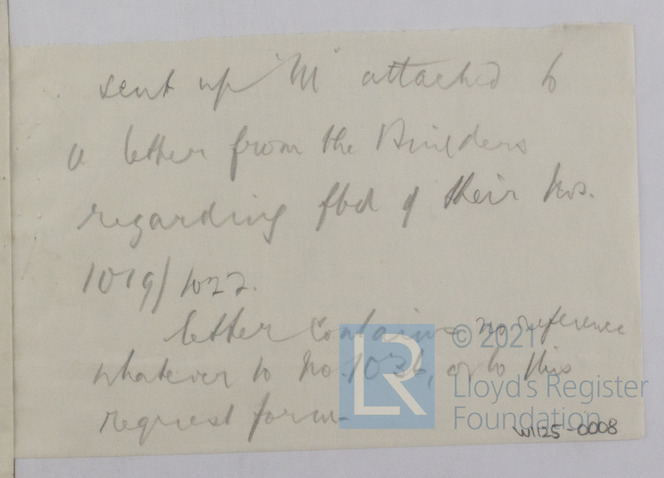 sent up "M" attached to
a letter from the Builders
regarding fbd of their Nos.
1019/1022.
letter contains no reference
whatever to No. 1026, or to this
request form
LR
© 2021
Lloyd's Register
Foundation
W1125-0008